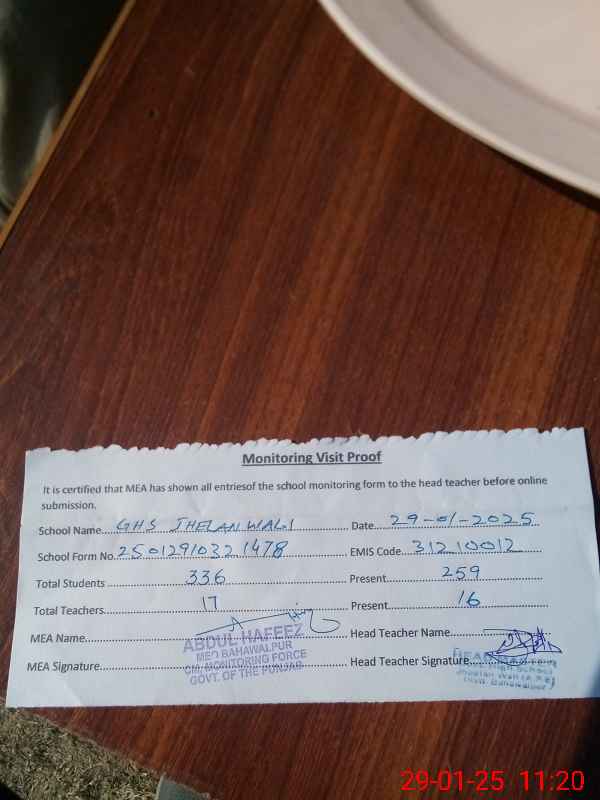 Monitoring Visit Proof
It is certified that MEA has shown all entriesof the school monitoring form to the head teacher before online
submission.
School Name....GHS JHELANWALI.... Date....29-01-2025....
School Form No.25012910321478.... EMIS Code....31210012....
Total Students....336.... Present....259....
Total Teachers....17.... Present....16....
MEA Name.... Head Teacher Name....
MEA Signature.... Head Teacher Signature....
ABDUL HAFEEZ
MEO BAHAWALPUR
CM MONITORING FORCE
GOVT. OF THE PUNJAB
HEAD
High School
Jhelan Wali
Bahawalpur
29-01-25 11:20